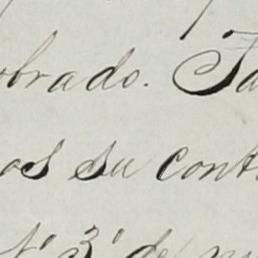 obrado. Ta
os su cont
Nº 3º de